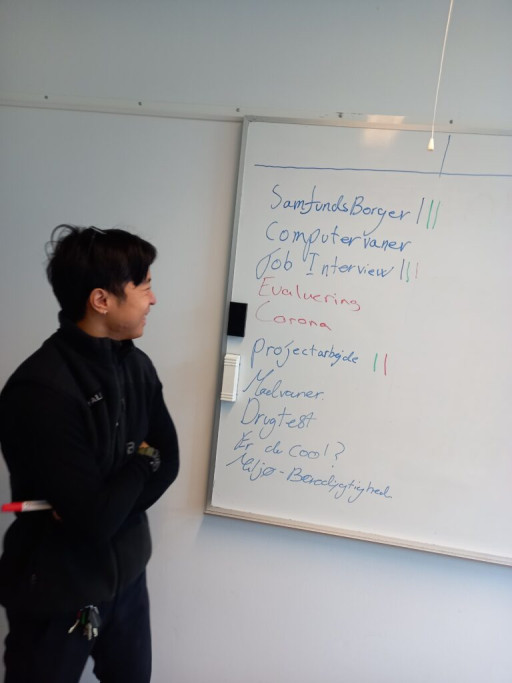 SamfundsBorger |||
Computervaner
Job Interview |||
Evaluering
Corona
Projectarbejde ||
Madvaner
Drugtest
Er du cool?
Miljø-Bæredygtighed